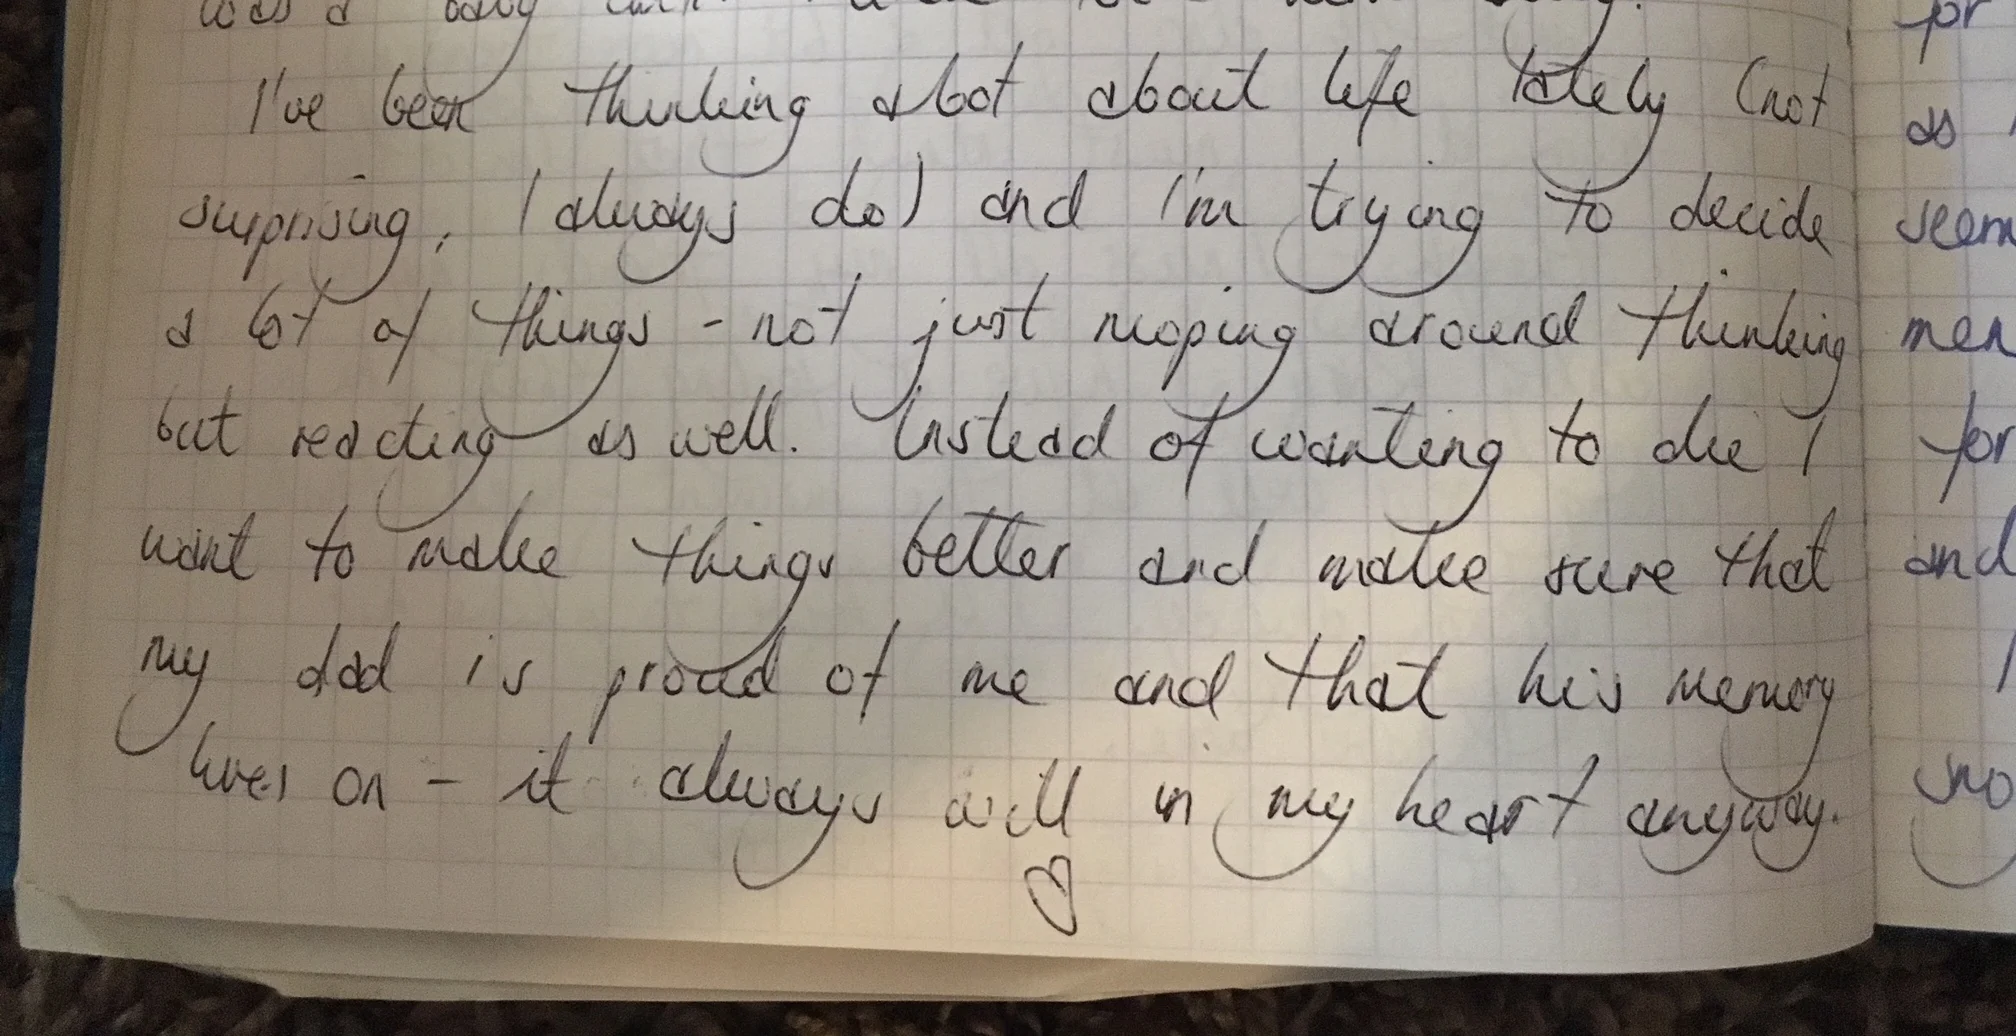 was a baby
I've been thinking a lot about life lately (not
surprising, I always do) and I'm trying to decide
a lot of things - not just moping around thinking
but reacting as well. Instead of wanting to die I
want to make things better and make sure that
my dad is proud of me and that his memory
lives on - it always will in my heart anyway.
♡
for
as
seem
men
for
and
I
sno